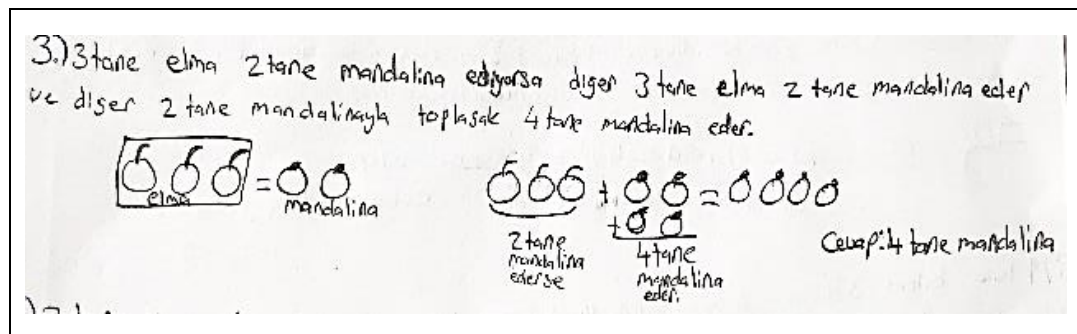 3.) 3 tane elma 2 tane mandalina ediyorsa diger 3 tane elma 2 tane mandalina eder
ve diger 2 tane mandalinayla toplasak 4 tane mandalina eder.
= 
elma
mandalina
+ =
+
2 tane
mandalina
ederse
4 tane
mandalina
eder.
Cevap: 4 tane mandalina